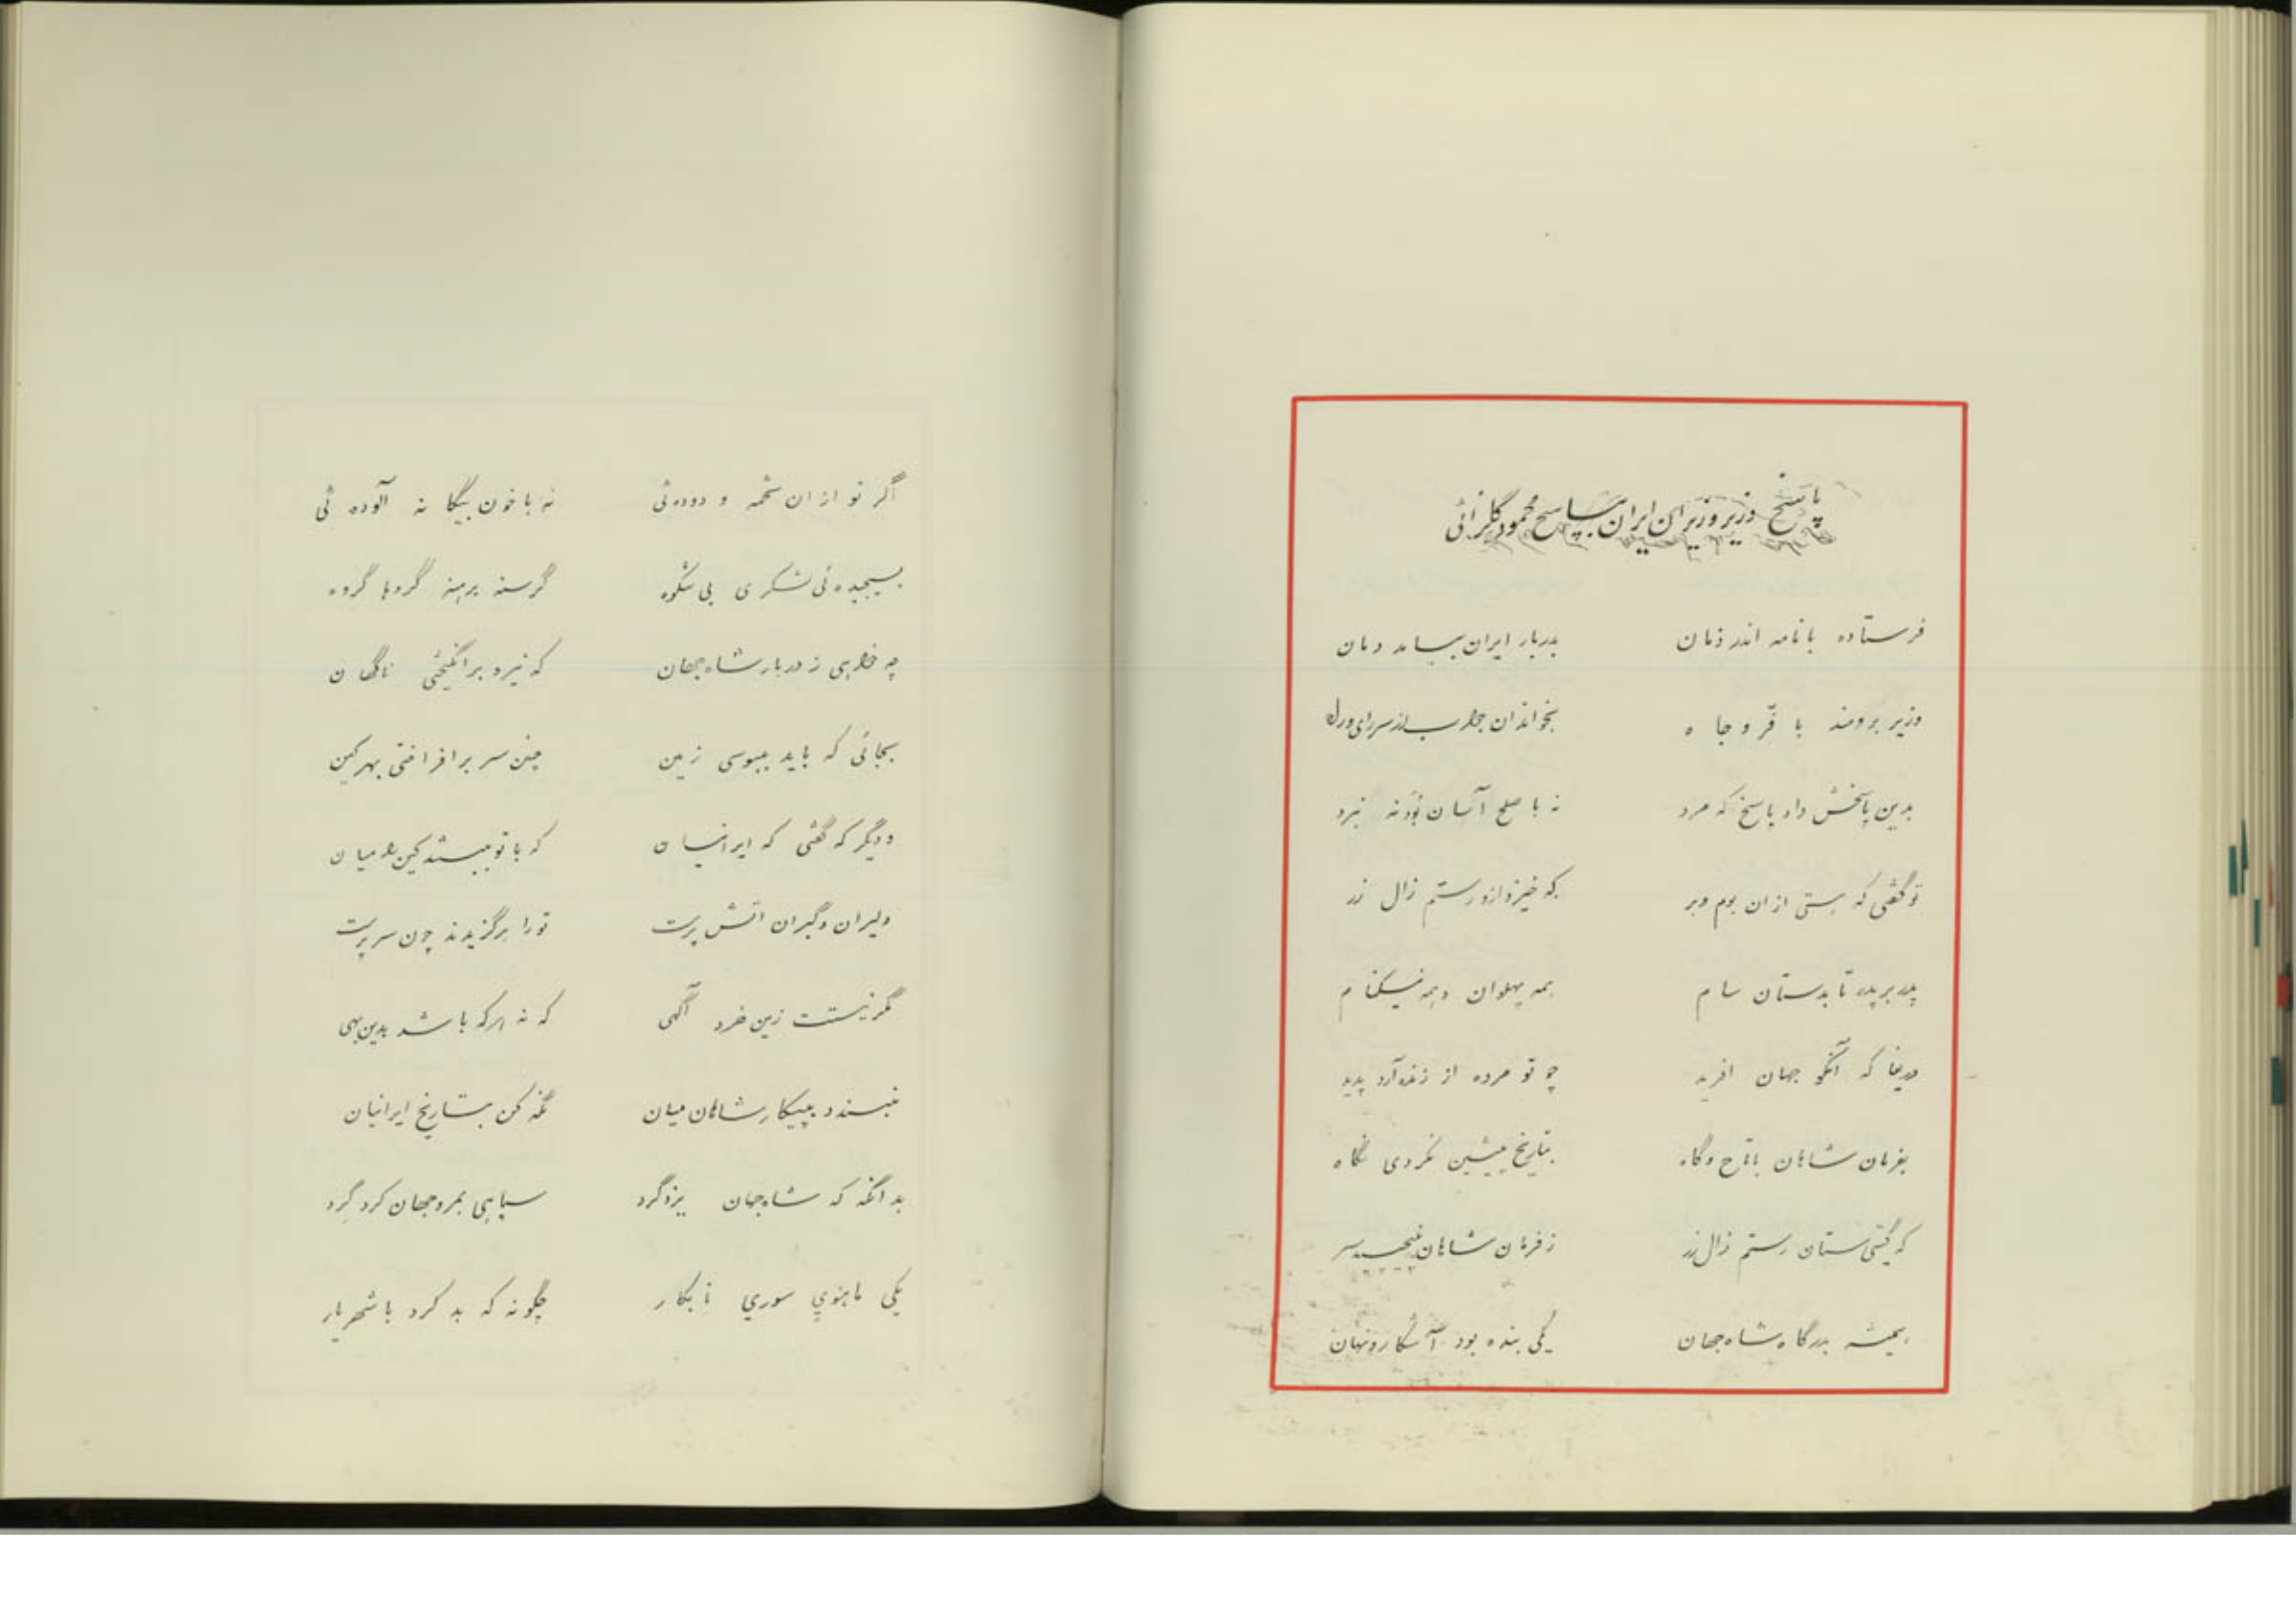 پاسخ وزیر وزیران ایران بپاسخ محمود گلزائی
فرستاده با نامه اندر زمان بدربار ایران بیامد دمان
وزیر برومند با فّر و جاه بخواند آن جواب از سرای
بدین پاسخش داد پاسخ که مرد نه با صلح آسان بُوَد نه نبرد
تو گفتی که هستی از ان بوم وبر که خیزد ازو رستم زال زر
پدر بر پدر تا بدستان سام همه پهلوان وهمه نیکنام
دریغا که آنکو جهان افرید چو تو مرده از زنده آرد پدید
بفرمان شاهان با تاج وگاه بتاریخ پیشین نکردی نگاه
که گیتی ستان رستم زال زر ز فرمان شاهان نپیچید سر
همیشه بدرگاه شاه جهان یکی بنده بود آشکار ونهان
اگر تو از ان تخمه و دوده ئی نه با خون بیگانه آلوده ئی
بسیجیده ئی لشکری بی شکوه گرسنه برهنه گروها گروه
چه خواهی ز دربار شاه جهان که نیرو بر انگیختی ناگهان
بجائی که باید ببوسی زمین چنن سر بر افراختی بهر کین
ودیگر که گفتی که ایرانیان که با تو ببستند کین را میان
دلیران وگبران اتش پرست تو را برگزیدند چون سرپرست
مگر نیستت زین خرد آگهی که نه هر که باشد بدین بهی
نبندد بپیکار شاهان میان نگه کن بتاریخ ایرانیان
بدانگه که شاه جهان یزدگرد سپاهی بمرو جهان کرد گِرد
یکی ماهنوی سوری نابکار چگونه که بد کرد با شهریار